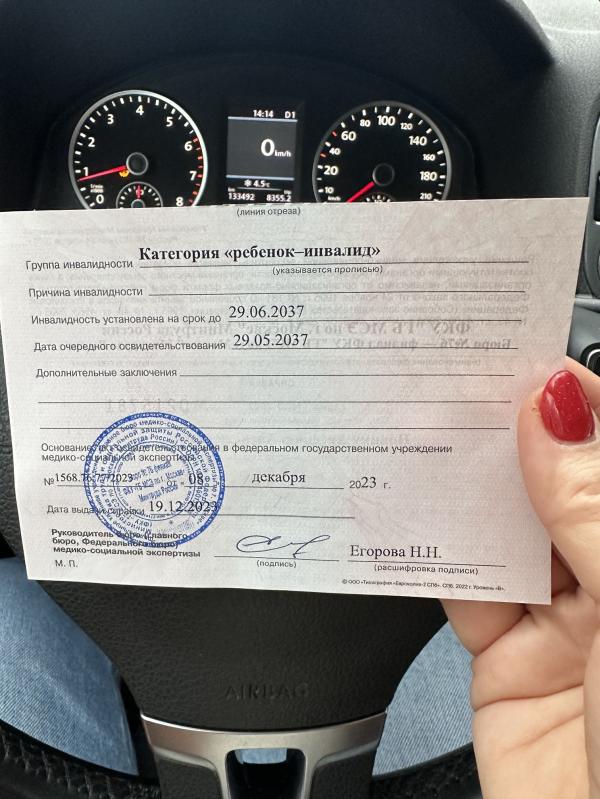 14:14 D1
0 km/h
4.5°C
133492 8355.2
1 2 3 4 5 6 7 8 0
1/min
10 20 40 60 80 100 120 140 160 180 210
km/h
(линия отреза)
Группа инвалидности Категория «ребенок–инвалид»
(указывается прописью)
Причина инвалидности
Инвалидность установлена на срок до 29.06.2037
Дата очередного освидетельствования 29.05.2037
Дополнительные заключения
Основание: акт освидетельствования в федеральном государственном учреждении
медико-социальной экспертизы
№ 1568.76.77/2023 от 08 декабря 2023 г.
Дата выдачи справки 19.12.2023
Руководитель бюро (главного
бюро, Федерального бюро)
медико-социальной экспертизы
Егорова Н.Н.
(подпись) (расшифровка подписи)
М. П.
© ООО «Типография «Евроколор-2 СПб». СПб. 2022 г. Уровень «В».
AIRBAG